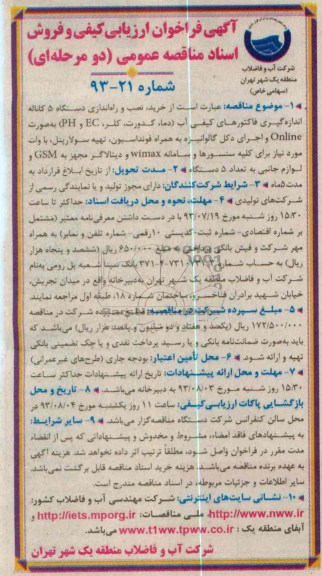 آگهی فراخوان ارزیابی کیفی و فروش
اسناد مناقصه عمومی (دو مرحله‌ای)
شماره ۲۱-۹۳
شرکت آب و فاضلاب
منطقه یک شهر تهران
(سهامی خاص)
۱- موضوع مناقصه: عبارت است از خرید، نصب و راه‌اندازی دستگاه ۵ کاناله
اندازه‌گیری فاکتورهای کیفی آب (دما، کدورت، کلر، EC و PH) به‌صورت
Online و اجرای دکل گالوانیزه به همراه فونداسیون، تهیه سولارپنل، با وات
مورد نیاز برای کلیه سنسورها و سامانه wimax و دیتالاگر مجهز به GSM و
لوازم جانبی به تعداد ۵ دستگاه ۲- مدت تحویل: از تاریخ ابلاغ قرارداد به
مدت ماه ۳- شرایط شرکت‌کنندگان: دارای مجوز تولید و یا نمایندگی رسمی از
شرکت‌های تولیدی ۴- مهلت، نحوه و محل دریافت اسناد: حداکثر تا ساعت
۱۵:۳۰ روز شنبه مورخ ۹۳/۰۷/۱۹ با در دست داشتن معرفی‌نامه معتبر (مشتمل
بر شماره اقتصادی- شماره ثبت- کدپستی ۱۰رقمی- شماره تلفن و نمابر) به همراه
مهر شرکت و فیش بانکی به مبلغ ۶۵۰/۰۰۰ ریال (ششصد و پنجاه هزار
ریال) به حساب شماره بانک سینا شعبه پل رومی به‌نام
شرکت آب و فاضلاب منطقه یک شهر تهران به‌دبیرخانه واقع در میدان تجریش،
خیابان شهید برادران فناخسرو، ساختمان شماره ۱۸، طبقه اول مراجعه نمایند.
۵- مبلغ سپرده شرکت در مناقصه: شرکت در مناقصه
۱۷۲/۵۰۰/۰۰۰ ریال (یکصد و هفتاد و دو میلیون و پانصد هزار ریال) می‌باشد که
باید به‌صورت ضمانت‌نامه بانکی و یا رسید پرداخت نقدی و یا چک تضمینی بانکی
تهیه و ارائه شود. ۶- محل تأمین اعتبار: بودجه جاری (طرح‌های غیرعمرانی)
۷- مهلت و محل ارائه پیشنهادات: تاریخ ارائه پیشنهادات حداکثر ساعت
۱۵:۳۰ روز شنبه مورخ ۹۳/۰۸/۰۳ به دبیرخانه می‌باشد. ۸- تاریخ و محل
بازگشایی پاکات ارزیابی کیفی: ساعت ۱۱ روز یکشنبه مورخ ۹۳/۰۸/۰۴ در
محل سالن کنفرانس شرکت دستگاه مناقصه‌گزار می‌باشد. ۹- سایر شرایط:
به پیشنهادهای فاقد امضاء، مشروط و مخدوش و پیشنهاداتی که پس از انقضاء
مدت مقرر در فراخوان واصل شود، مطلقاً ترتیب اثر داده نخواهد شد. هزینه آگهی
به عهده برنده مناقصه می‌باشد. هزینه خرید اسناد مناقصه قابل برگشت نمی‌باشد.
سایر اطلاعات و جزئیات مربوطه، در اسناد مناقصه مندرج است.
۱۰- نشانی سایت‌های اینترنتی: شرکت مهندسی آب و فاضلاب کشور:
http://www.nww.ir، ملی مناقصات: http://iets.mporg.ir و
آبفای منطقه یک : www.t1ww.tpww.co.ir می‌باشد.
شرکت آب و فاضلاب منطقه یک شهر تهران